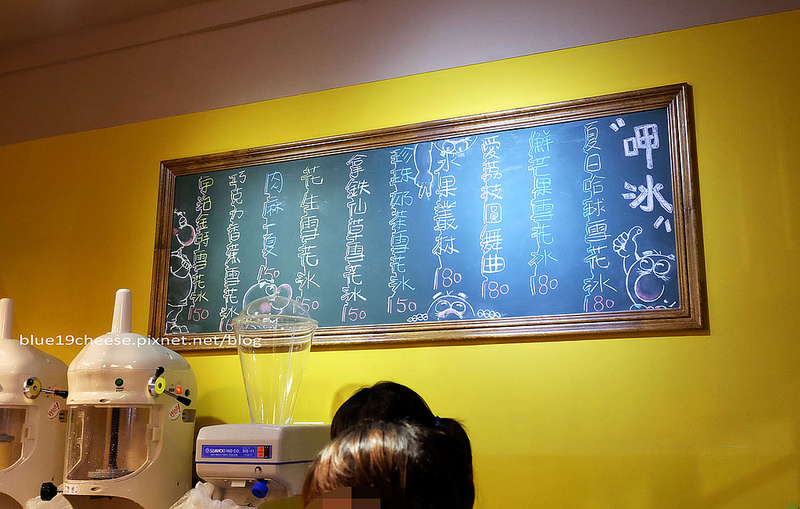 "呷冰"
夏日哈球雪花冰180
鮮芒果雪花冰180
愛荔枝圓舞曲180
水果叢林180
珍珠奶茶雪花冰150
拿鐵仙草雪花冰150
花生雪花冰150
肉麻一夏150
巧克力香蕉雪花冰150
宇治金時雪花冰150
blue19cheese.pixnet.net/blog